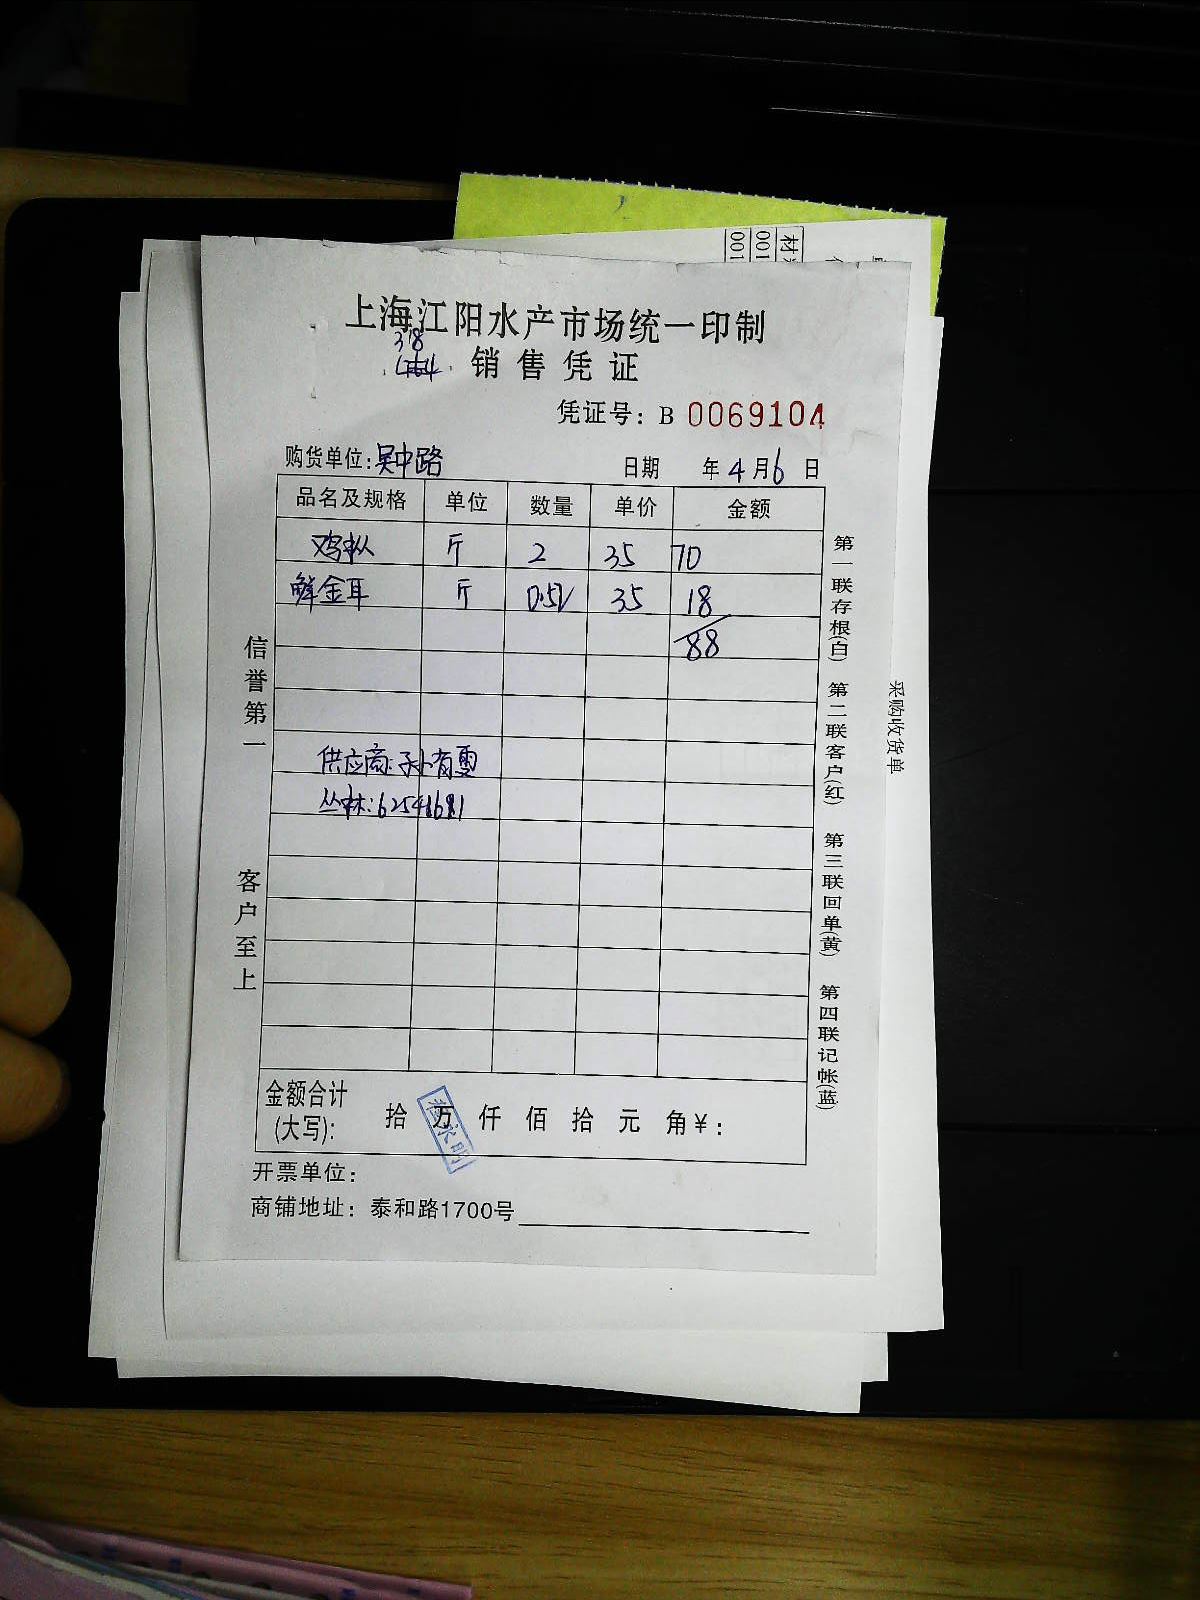 上海江阳水产市场统一印制
318
销售凭证
凭证号: B 0069104
购货单位: 吴中路 日期 年 4 月 6 日
品名及规格 单位 数量 单价 金额
鸡枞 斤 2 35 70
鲜金耳 斤 0.52 35 18
88
供应商: 孙有雪
丛林: 62541681
信誉第一
客户至上
第一联存根(白) 第二联客户(红) 第三联回单(黄) 第四联记帐(蓝)
采购收货单
金额合计
(大写): 拾 万 仟 佰 拾 元 角 ¥:
开票单位:
商铺地址: 泰和路1700号
材
001
001